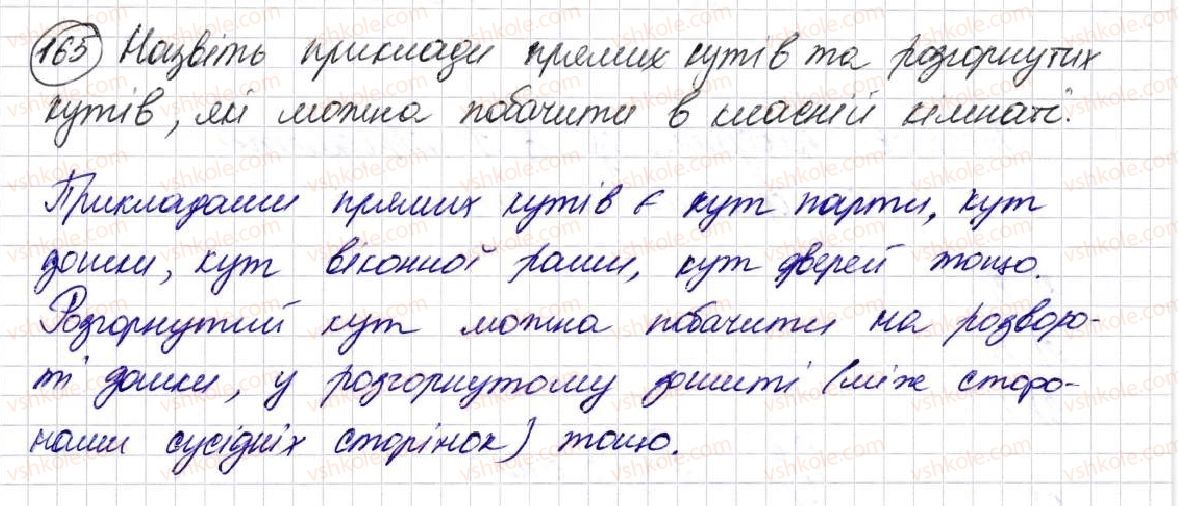 165 Назвіть приклади прямих кутів та розгорнутих
кутів, які можна побачити в класній кімнаті.
Прикладами прямих кутів є кут парти, кут
дошки, кут віконної рами, кут дверей тощо.
Розгорнутий кут можна побачити на розворо-
ті дошки, у розгорнутому зошиті (між сторо-
нами сусідніх сторінок) тощо.